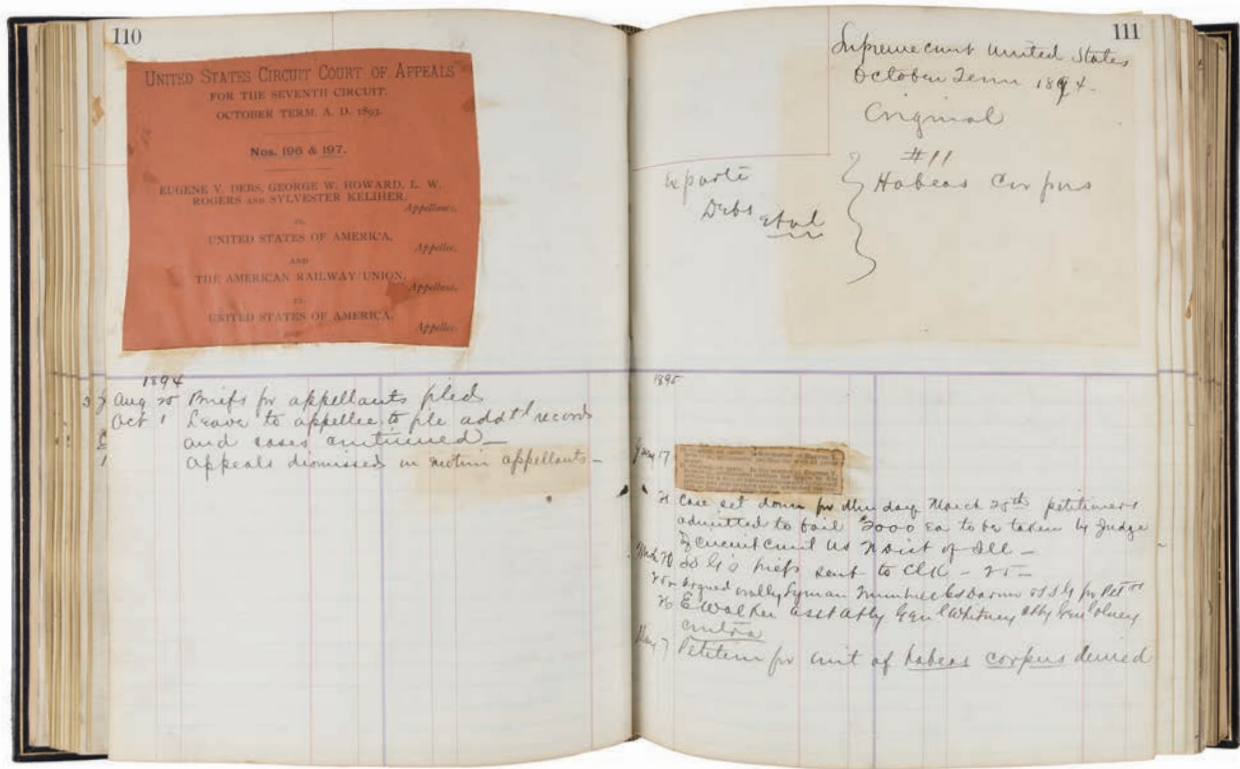 110
UNITED STATES CIRCUIT COURT OF APPEALS
FOR THE SEVENTH CIRCUIT.
OCTOBER TERM, A. D. 1893.
Nos. 196 & 197.
EUGENE V. DEBS, GEORGE W. HOWARD, L. W.
ROGERS AND SYLVESTER KELIHER,
Appellants,
vs.
UNITED STATES OF AMERICA,
Appellee.
AND
THE AMERICAN RAILWAY UNION,
Appellant,
vs.
UNITED STATES OF AMERICA,
Appellee.
1894
Aug 25 Briefs for appellants filed
Oct 1 Leave to appellee to file addtl records
and cases continued —
Appeals dismissed on motion appellants —
111
Supreme Court United States
October Term 1894
Original
#11
Ex parte
Debs et al
Habeas Corpus
1895
Jany 17
21 Case set down for Monday March 25th petitioners
admitted to bail $2000 ea to be taken by Judge
of Circuit Court US N Dist of Ill —
March 20 briefs sent to Clk — 25 —
25 Argued orally Lyman Trumbull Darrow for
26 E Walker asst atty Genl Whitney atty Genl Olney
contra
May 7 Petition for writ of habeas corpus denied